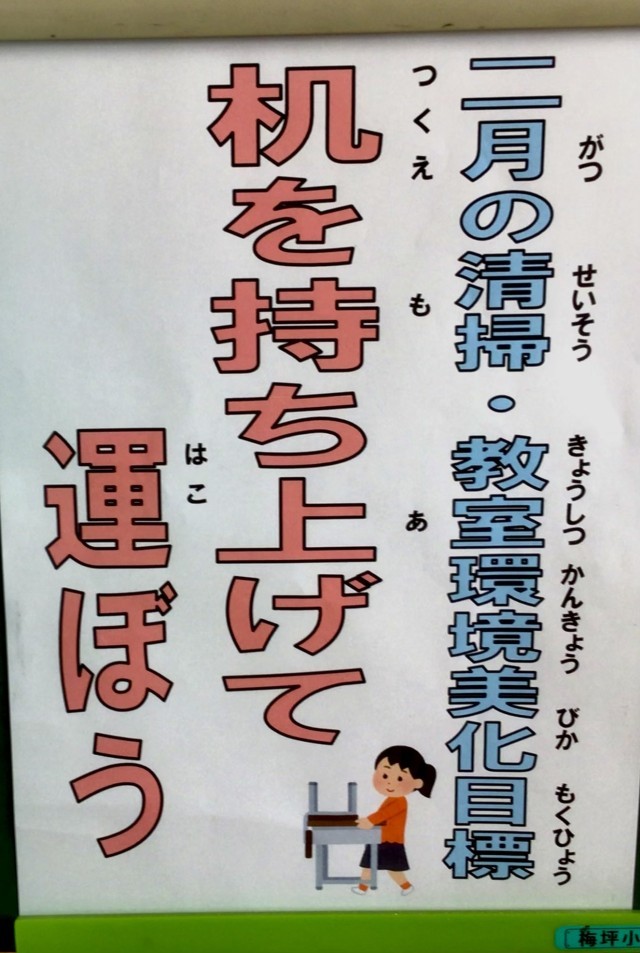 二月の清掃・教室環境美化目標
がつ
せいそう
きょうしつ
かんきょう
びか
もくひょう
机を持ち上げて
つくえ
も
あ
運ぼう
はこ
梅坪小